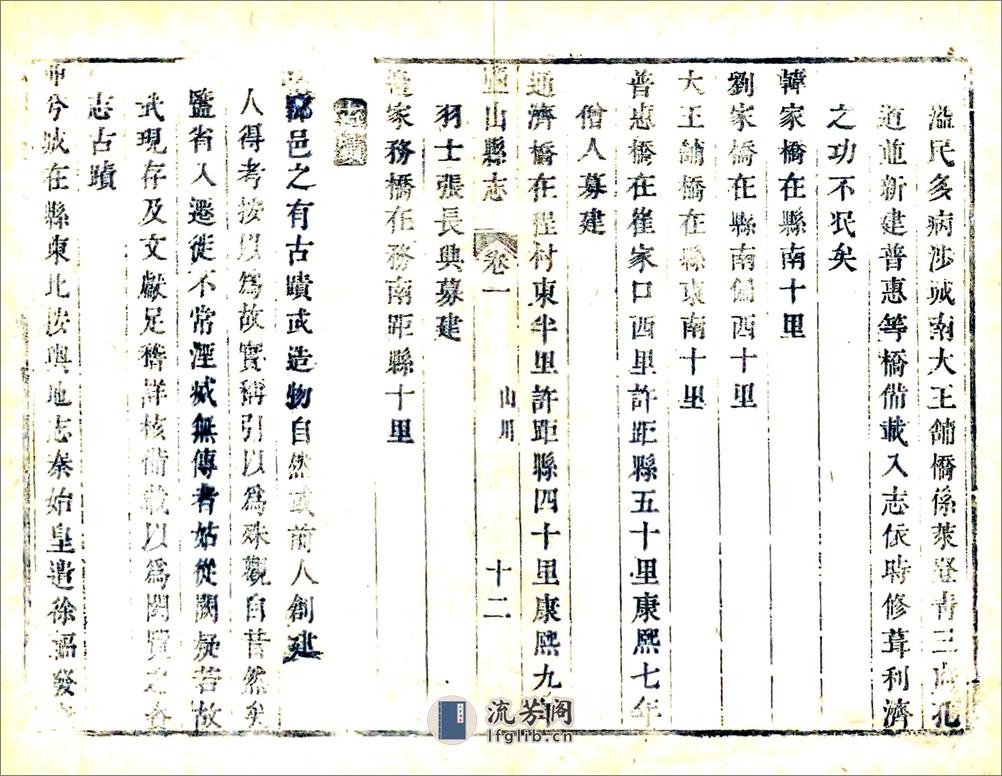 溢民多病涉城南大王舖橋係萊登青三
道並新建普惠等橋備載入志依時修葺利濟
之功不泯矣
韓家橋在縣南十里
劉家橋在縣南偏西十里
大王舖橋在縣東南十里
普惠橋在崔家口西里許距縣五十里康熙七年
僧人募建
通濟橋在程村東半里許距縣四十里康熙九年
山縣志 卷一 山川 十二
羽士張長興募建
家務橋在務南距縣十里
古蹟
郡邑之有古蹟或造物自然或前人創建
人得考按以爲故實稱引以爲殊觀自昔然矣
鹽省入遷徙不常湮滅無傳者姑從闕疑若故
武現存及文獻足稽詳核備載以爲閱覽之
志古蹟
兮城在縣東北按輿地志秦始皇遣徐福發
流芳阁
lfglib.cn